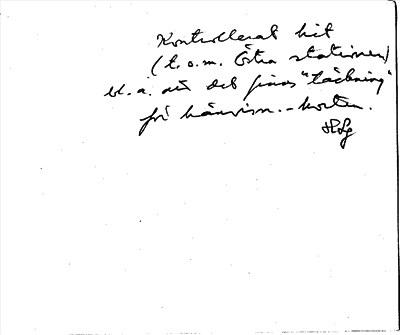 Kontrollerat hit
(t.o.m. Östra stationen)
bl.a. att det finns "täckning"
för hänvisn.-korten.